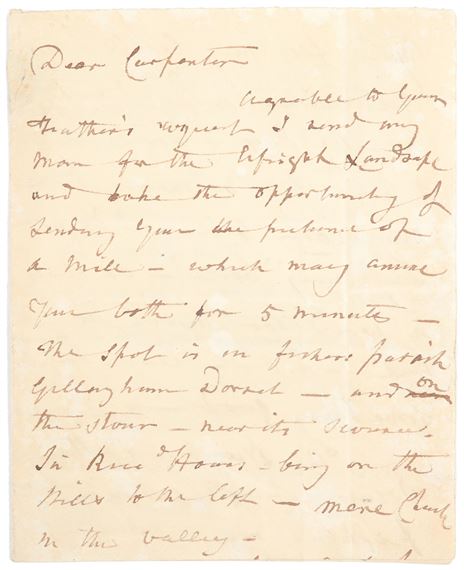 Dear Carpenter
Agreable to your
Father's request I send my
man for the Upright Landscape
and take the opportunity of
sending you the picture of
a Mill – which may amuse
you both for 5 minutes –
The spot is in fishers parish
Gillingham Dorset – and on
the stour – near its source.
Sir Ricd Hoares – being on the
Hills to the left – mere Church
in the valley –